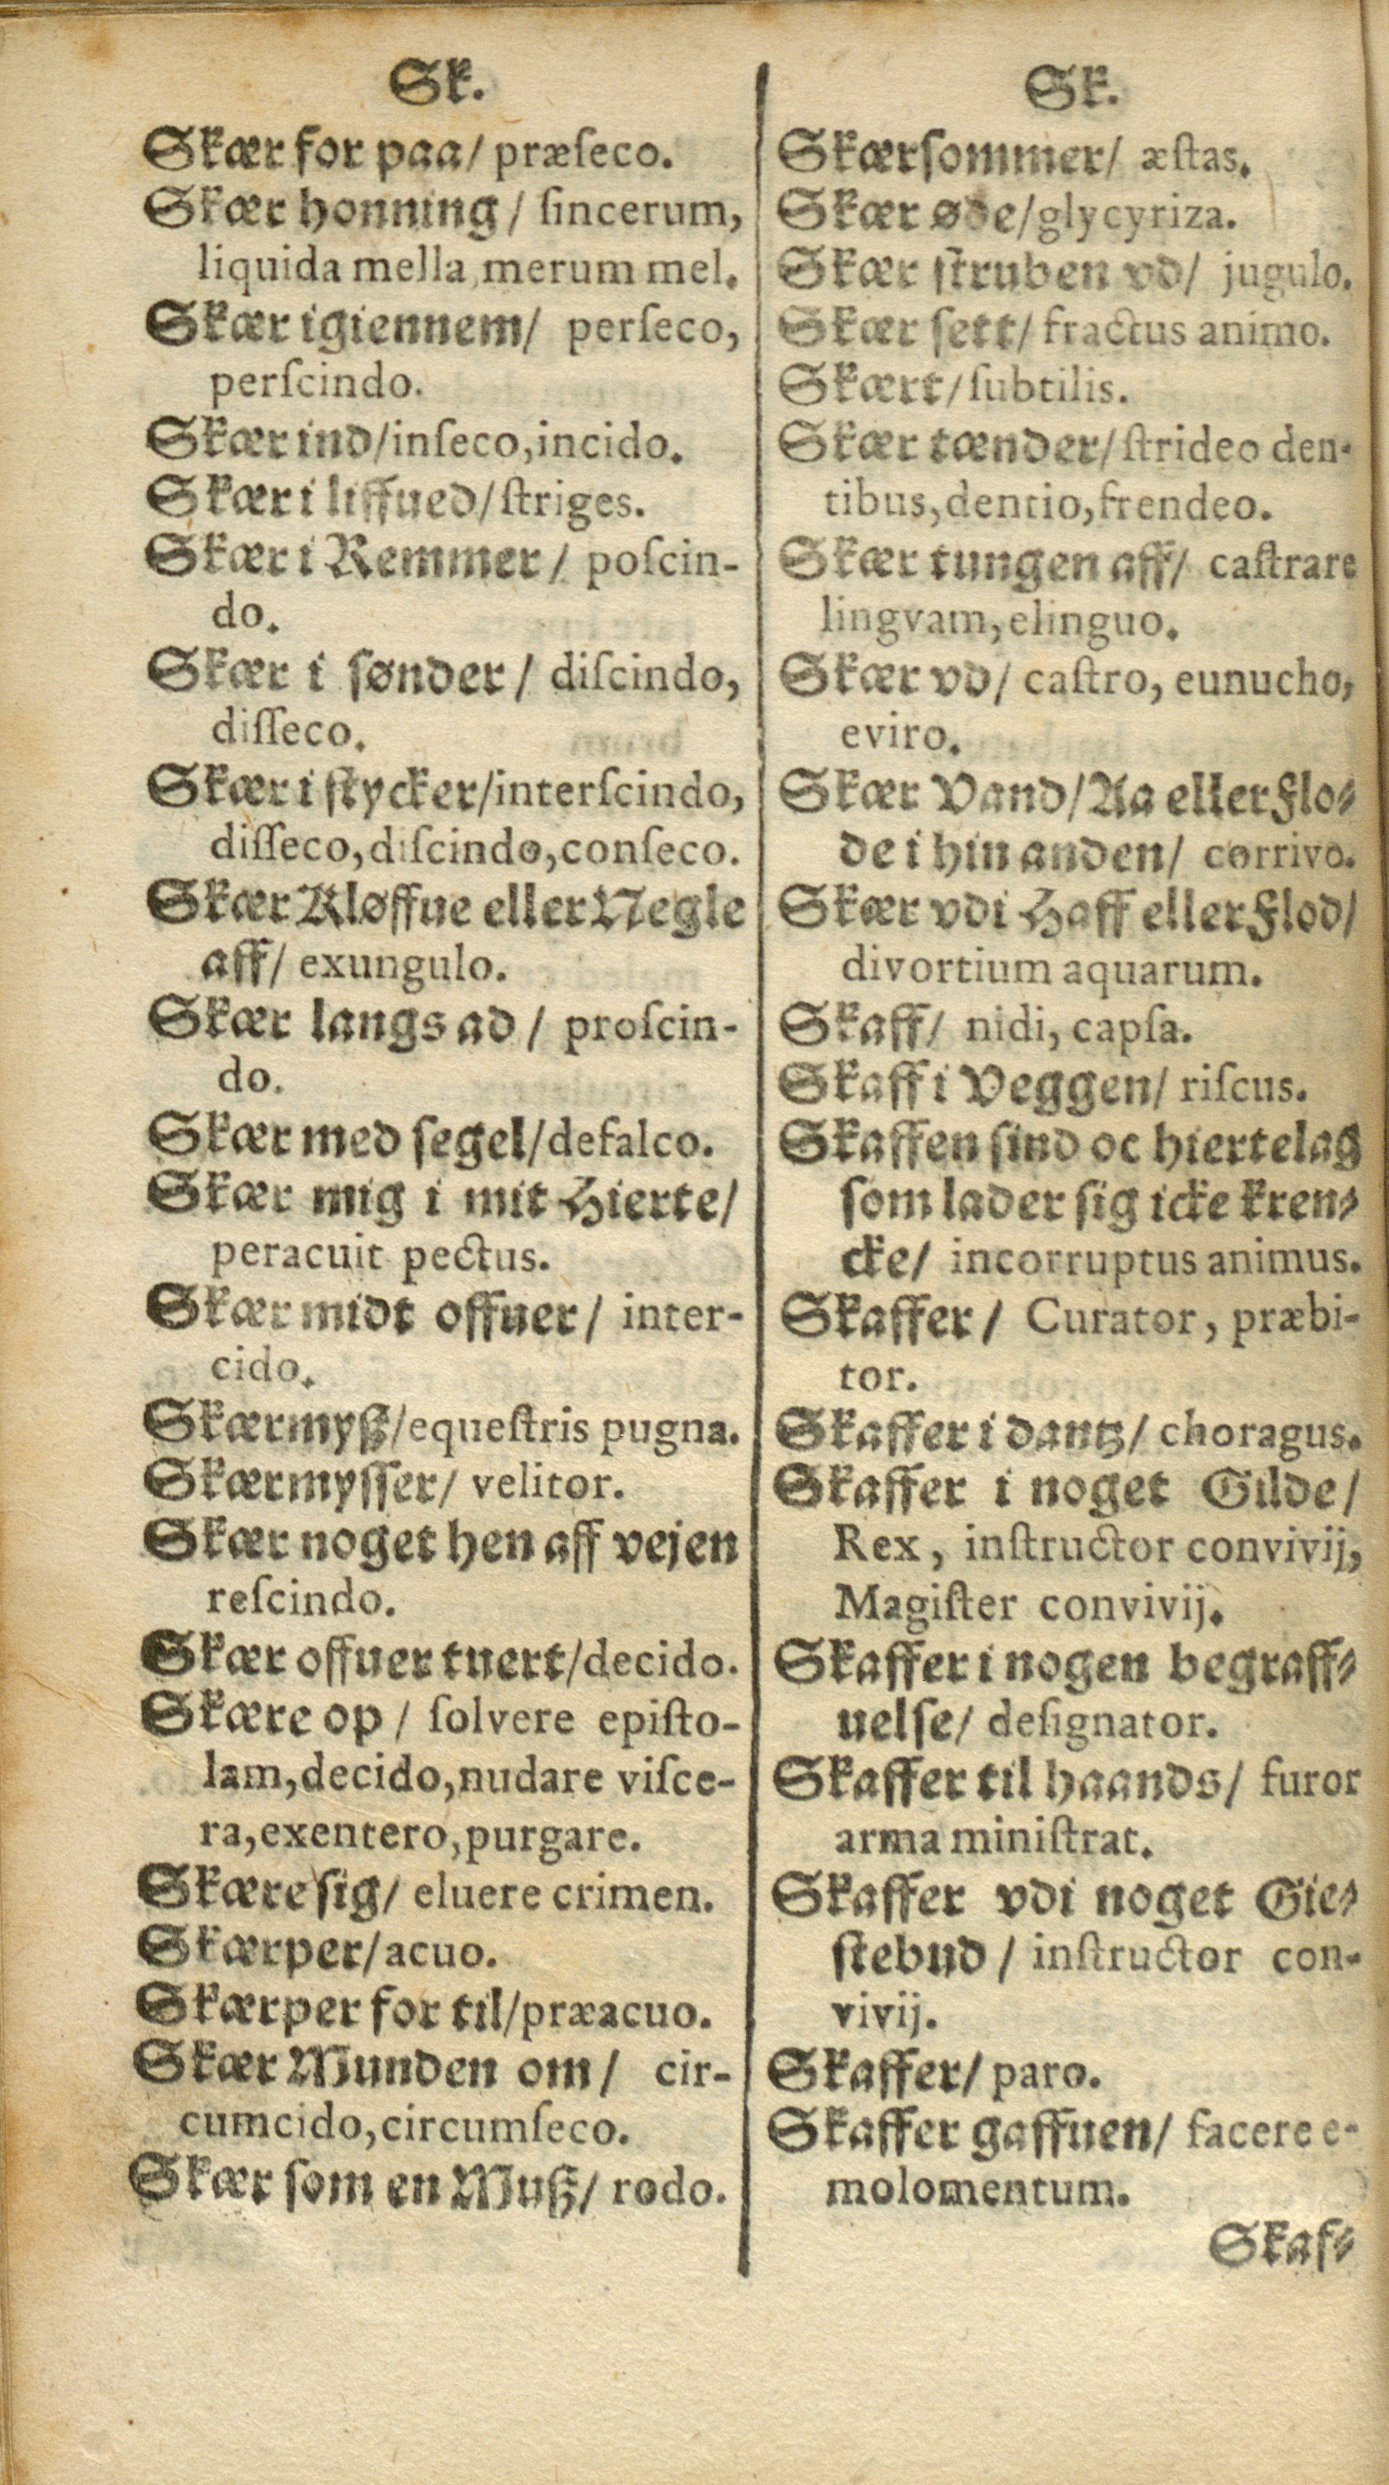 Sk.
Skær for paa/ præſeco.
Skær honning / ſincerum,
liquida mella, merum mel.
Skær igiennem/ perſeco,
perſcindo.
Skær ind/inſeco,incido.
Skær i liffued/ſtriges.
Skær i Remmer / poſcin-
do.
Skær i sønder / diſcindo,
diſſeco.
Skær i ſtycker/interſcindo,
diſſeco,diſcindo,conſeco.
Skær Kløffue eller Negle
aff/ exungulo.
Skær langs ad / proſcin-
do.
Skær med ſegel/defalco.
Skær mig i mit Hierte/
peracuit pectus.
Skær midt offuer/ inter-
cido.
Skærmyß/equeſtris pugna.
Skærmyſſer/ velitor.
Skær noget hen aff vejen
reſcindo.
Skær offuer tuert/decido.
Skære op / ſolvere epiſto-
lam,decido,nudare viſce-
ra,exentero,purgare.
Skære ſig/ eluere crimen.
Skærper/acuo.
Skærper for til/præacuo.
Skær Munden om/ cir-
cumcido,circumſeco.
Skær ſom en Muß/ rodo.
Sk.
Skærſommer/ æſtas.
Skær øde/glycyriza.
Skær ſtruben vd/ jugulo.
Skær ſett/ fractus animo.
Skært/ſubtilis.
Skær tænder/ſtrideo den-
tibus,dentio,frendeo.
Skær tungen aff/ caſtrare
lingvam,elinguo.
Skær vd/ caſtro, eunucho,
eviro.
Skær Vand/Aa eller Flo-
de i hin anden/ corrivo.
Skær vdi Haff eller Flod/
divortium aquarum.
Skaff/ nidi, capſa.
Skaff i Veggen/ riſcus.
Skaffen ſind oc hiertelag
ſom lader ſig icke kren-
cke/ incorruptus animus.
Skaffer/ Curator, præbi-
tor.
Skaffer i dantz/ choragus.
Skaffer i noget Gilde/
Rex, inſtructor convivij,
Magiſter convivij.
Skaffer i nogen begraff-
uelſe/ deſignator.
Skaffer til haands/ furor
arma miniſtrat.
Skaffer vdi noget Gie-
ſtebud / inſtructor con-
vivij.
Skaffer/ paro.
Skaffer gaffuen/ facere e-
molomentum.
Skaf-